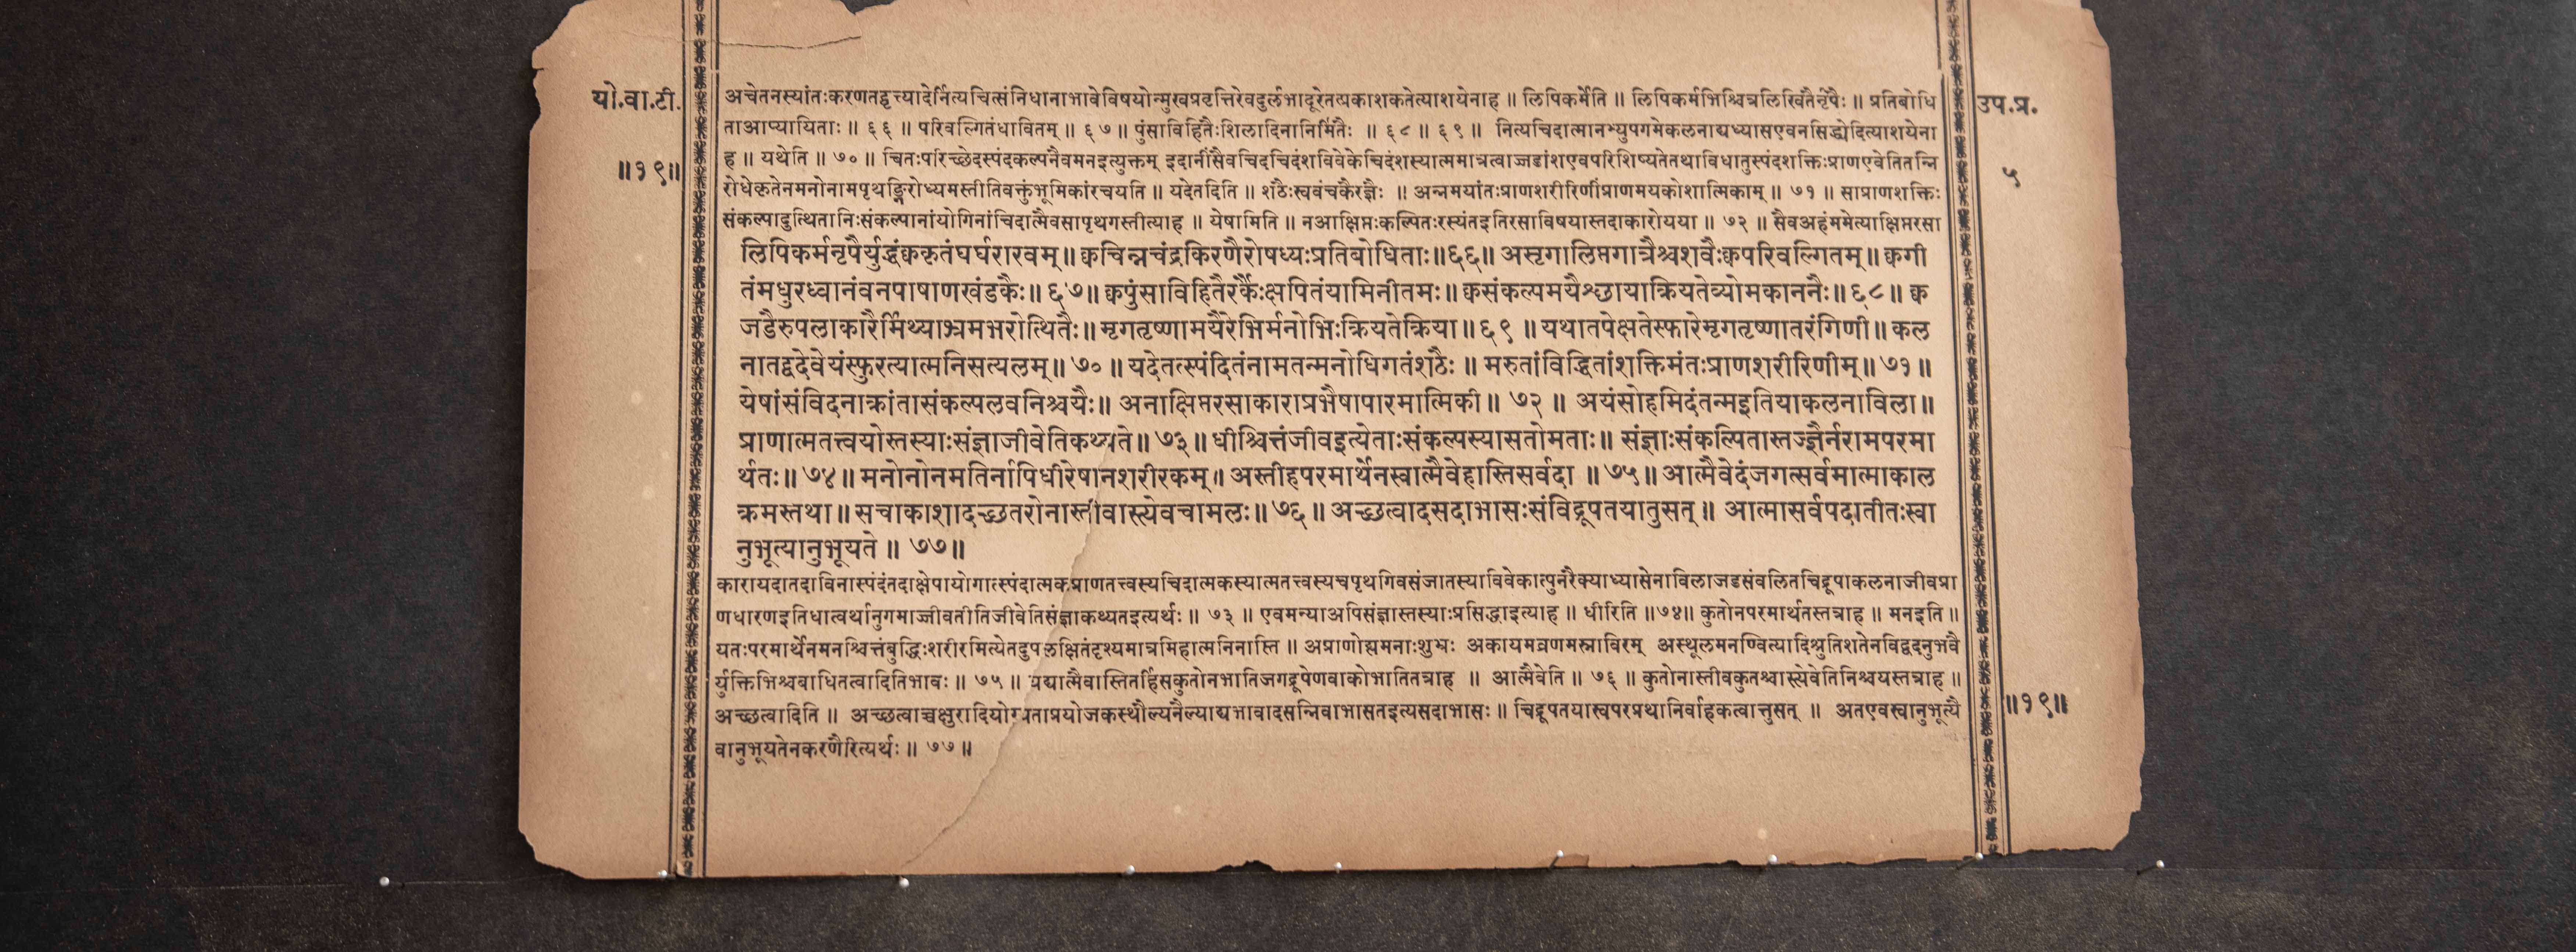 यो.वा.टी.
॥१९॥
अचेतनस्यांतःकरणतद्वृत्त्यादेर्नित्यचित्संनिधानाभावेविषयोन्मुखप्रवृत्तिरेवदुर्लभादूरेतत्प्रकाशकतेत्याशयेनाह ॥ लिपिकर्मेति ॥ लिपिकर्मभिश्चित्रलिखितैर्नृपैः ॥ प्रतिबोधि
ताआप्यायिताः ॥ ६६ ॥ परिवल्गितंधावितम् ॥ ६७ ॥ पुंसाविहितैःशिलादिनानिर्मितैः ॥ ६८ ॥ ६९ ॥ नित्यचिदात्मानभ्युपगमेकलनाद्यध्यासएवनसिद्ध्येदित्याशयेना
ह ॥ यथेति ॥ ७० ॥ चितःपरिच्छेदस्पंदकल्पनैवमनइत्युक्तम् इदानींसैवचिदचिदंशविवेकेचिदंशस्यात्ममात्रत्वाज्जडांशएवपरिशिष्यतेतथाविधातुस्पंदशक्तिःप्राणएवेतितन्नि
रोधेकृतेनमनोनामपृथङ्निरोध्यमस्तीतिवक्तुंभूमिकांरचयति ॥ यदेतदिति ॥ शठैःस्ववंचकैरज्ञैः ॥ अन्नमयांतःप्राणशरीरिणींप्राणमयकोशात्मिकाम् ॥ ७१ ॥ साप्राणशक्तिः
संकल्पादुत्थितानिःसंकल्पानांयोगिनांचिदात्मैवसापृथगस्तीत्याह ॥ येषामिति ॥ नआक्षिप्तःकल्पितःरस्यंतइतिरसाविषयास्तदाकारोयया ॥ ७२ ॥ सैवअहंममेत्याक्षिप्तरसा
लिपिकर्मनृपैर्युद्धंक्वकृतंघर्घरारवम् ॥ क्वचिन्नचंद्रकिरणैरोषध्यःप्रतिबोधिताः ॥ ६६ ॥ असृगालिप्तगात्रैश्चशवैःक्वपरिवल्गितम् ॥ क्वगी
तंमधुरध्वानंवनपाषाणखंडकैः ॥ ६७ ॥ क्वपुंसाविहितैरर्कैःक्षपितंयामिनीतमः ॥ क्वसंकल्पमयैश्छायाक्रियतेव्योमकाननैः ॥ ६८ ॥ क्व
जडैरुपलाकारैर्मिथ्याभ्रमभरोत्थितैः ॥ मृगतृष्णामयैरेभिर्मनोभिःक्रियतेक्रिया ॥ ६९ ॥ यथातपेक्षतेस्फारेमृगतृष्णातरंगिणी ॥ कल
नातद्वदेवेयंस्फुरत्यात्मनिसत्यलम् ॥ ७० ॥ यदेतत्स्पंदितंनामतन्मनोधिगतंशठैः ॥ मरुतांविद्धितांशक्तिमंतःप्राणशरीरिणीम् ॥ ७१ ॥
येषांसंविदनाक्रांतासंकल्पलवनिश्चयैः ॥ अनाक्षिप्तरसाकाराप्रभैषापारमात्मिकी ॥ ७२ ॥ अयंसोहमिदंतन्मइतियाकलनाविला ॥
प्राणात्मतत्त्वयोस्तस्याःसंज्ञाजीवेतिकथ्यते ॥ ७३ ॥ धीश्चित्तंजीवइत्येताःसंकल्पस्यासतोमताः ॥ संज्ञाःसंकल्पितास्तज्ज्ञैर्नरामपरमा
र्थतः ॥ ७४ ॥ मनोनोनमतिर्नापिधीरेषानशरीरकम् ॥ अस्तीहपरमार्थेनस्वात्मैवेहास्तिसर्वदा ॥ ७५ ॥ आत्मैवेदंजगत्सर्वमात्माकाल
क्रमस्तथा ॥ सचाकाशादच्छतरोनास्तीवास्त्येवचामलः ॥ ७६ ॥ अच्छत्वादसदाभासःसंविद्रूपतयातुसत् ॥ आत्मासर्वपदातीतःस्वा
नुभूत्यानुभूयते ॥ ७७ ॥
कारायदातदाविनास्पंदंतदाक्षेपायोगात्स्पंदात्मकप्राणतत्त्वस्यचिदात्मकस्यात्मतत्त्वस्यचपृथगिवसंजातस्याविवेकात्पुनरैक्याध्यासेनाविलाजडसंवलितचिद्रूपाकलनाजीवप्रा
णधारणइतिधात्वर्थानुगमाज्जीवतीतिजीवेतिसंज्ञाकथ्यतइत्यर्थः ॥ ७३ ॥ एवमन्याअपिसंज्ञास्तस्याःप्रसिद्धाइत्याह ॥ धीरिति ॥ ७४ ॥ कुतोनपरमार्थतस्तत्राह ॥ मनइति ॥
यतःपरमार्थेनमनश्चित्तंबुद्धिःशरीरमित्येतदुपलक्षितंदृश्यमात्रमिहात्मनिनास्ति ॥ अप्राणोह्यमनाःशुभ्रः अकायमव्रणमस्नाविरम् अस्थूलमनण्वित्यादिश्रुतिशतेनविद्वदनुभवै
र्युक्तिभिश्चबाधितत्वादितिभावः ॥ ७५ ॥ यद्यात्मैवास्तितर्हिसकुतोनभातिजगद्रूपेणवाकोभातितत्राह ॥ आत्मैवेति ॥ ७६ ॥ कुतोनास्तीवकुतश्चास्त्येवेतिनिश्चयस्तत्राह ॥
अच्छत्वादिति ॥ अच्छत्वाच्चक्षुरादियोग्यताप्रयोजकस्थौल्यनैल्याद्यभावादसन्निवाभासतइत्यसदाभासः ॥ चिद्रूपतयास्वपरप्रथानिर्वाहकत्वात्तुसत् ॥ अतएवस्वानुभूत्यै
वानुभूयतेनकरणैरित्यर्थः ॥ ७७ ॥
उप.प्र.
५
॥१९॥